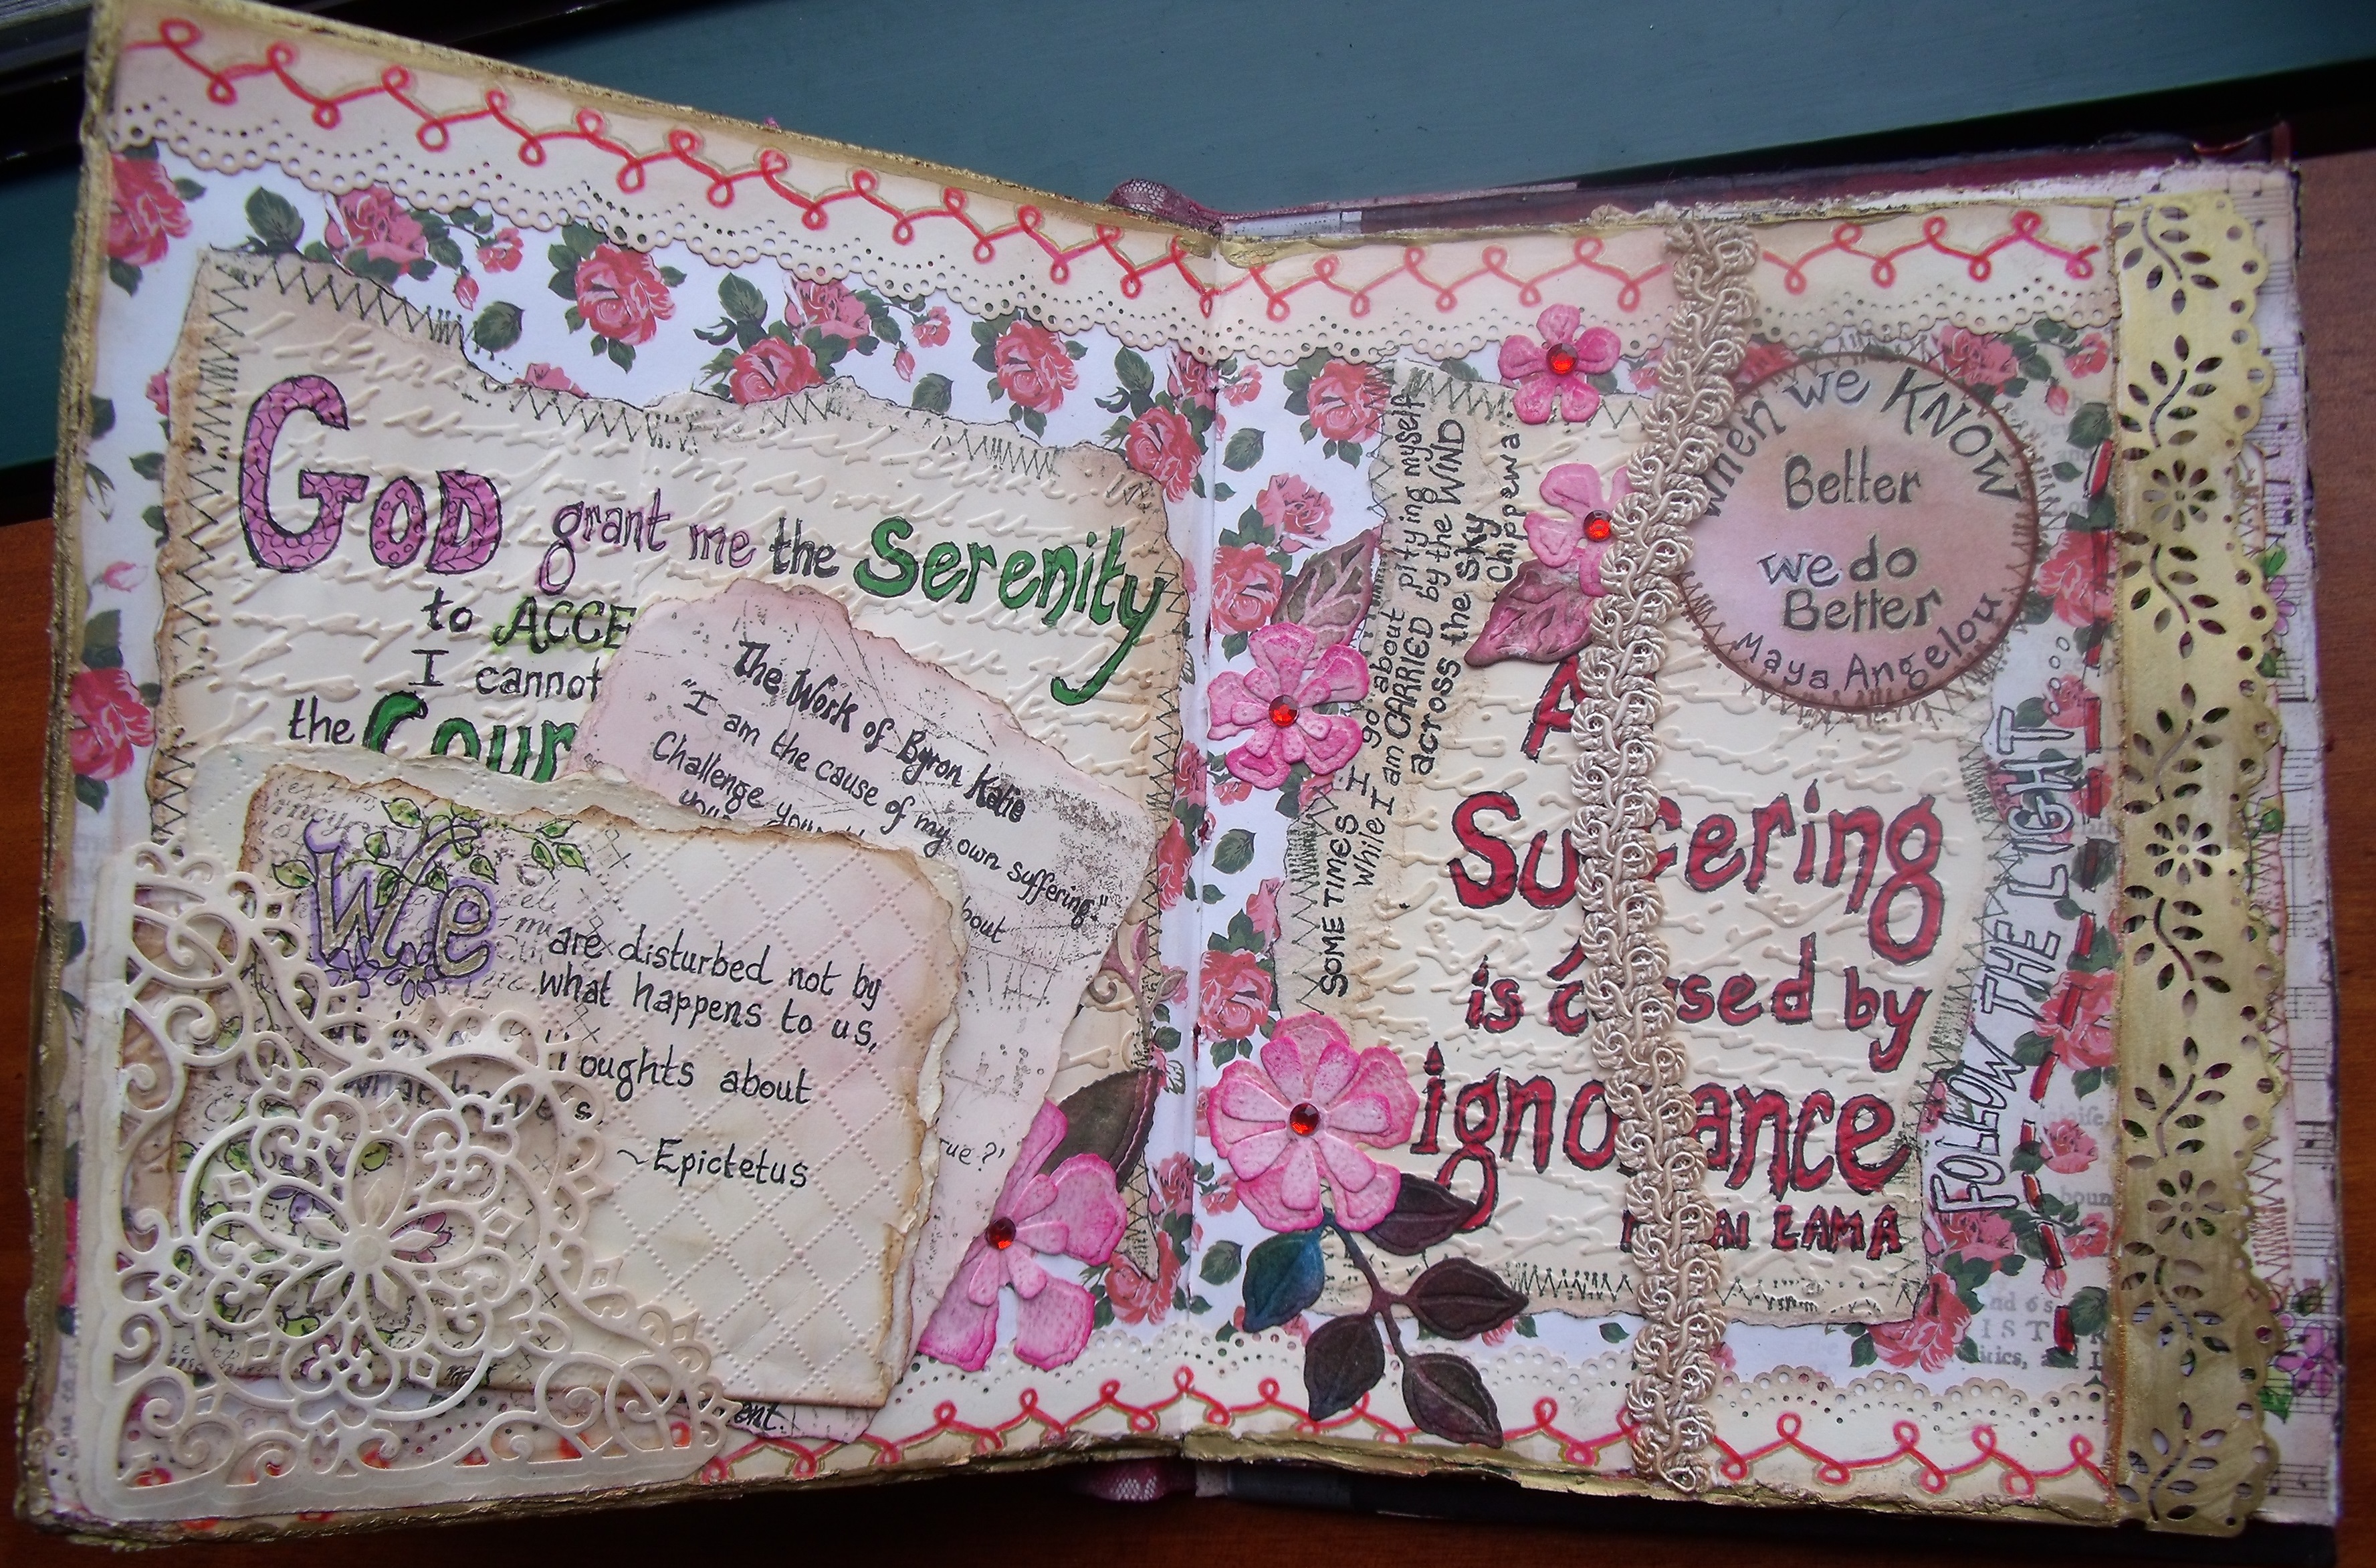 GOD grant me the Serenity
to ACCE
I cannot
the Cour
The Work of Byron Katie
"I am the cause of my own suffering."
Challenge your
bout
rue?'
ent.
We are disturbed not by
what happens to us,
oughts about
~Epictetus
SOME TIMES I go about pitying myself
While I am CARRIED by the WIND
across the sky
Chippewa
When we KNOW
Better
we do
Better
Maya Angelou
A
Suffering
is caused by
ignorance
LAMA
FOLLOW THE LIGHT...